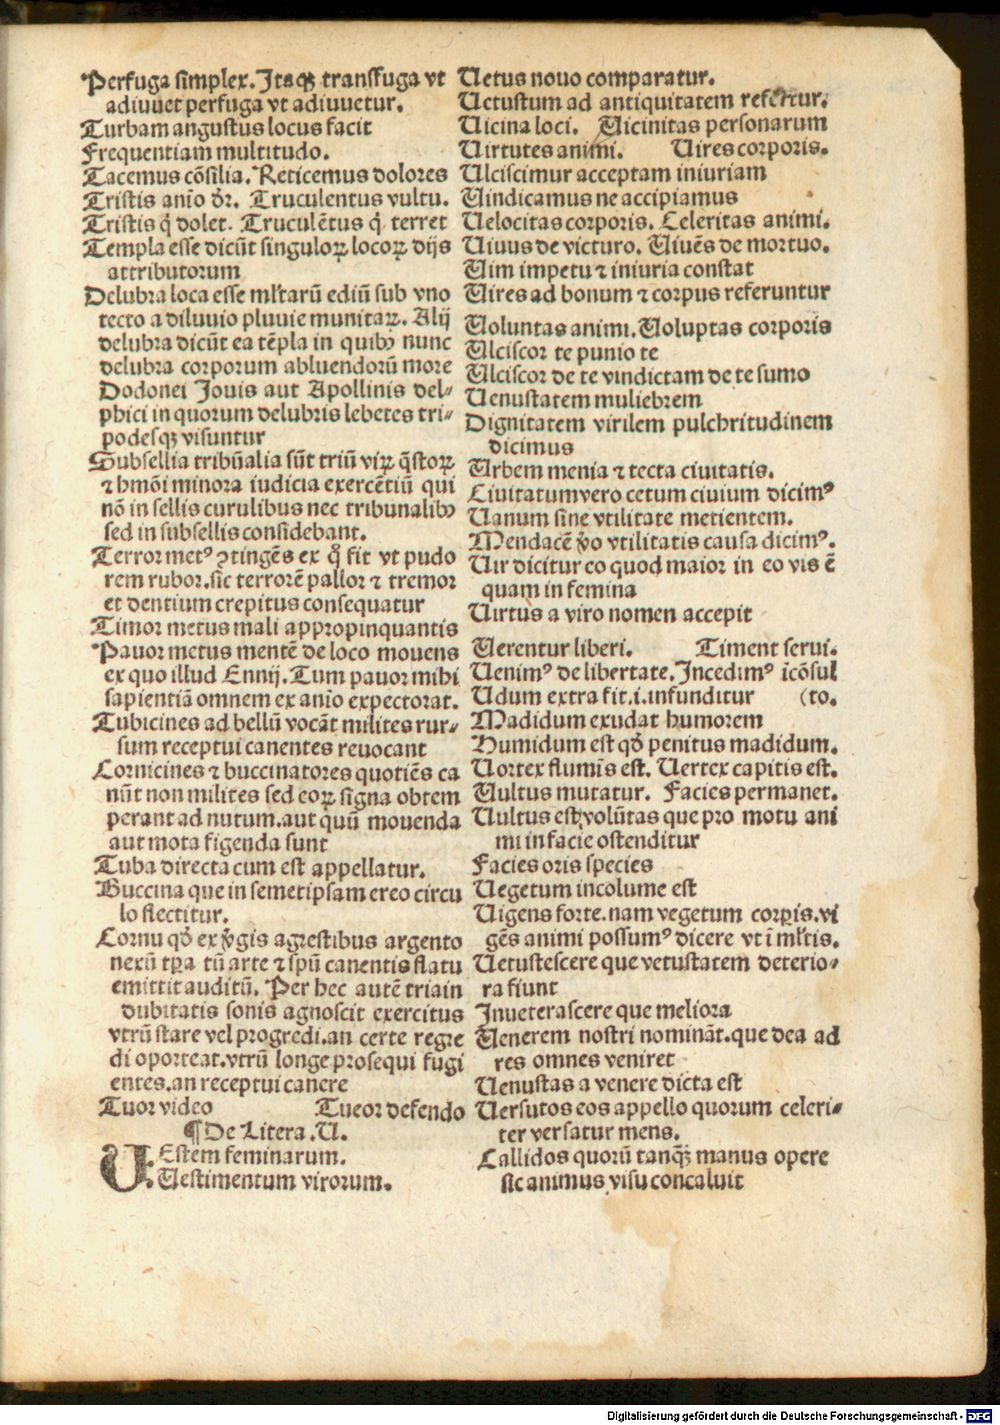 Perfuga simplex. Itaqꝫ transfuga vt
adiuuet perfuga vt adiuuetur.
Turbam angustus locus facit
Frequentiam multitudo.
Tacemus cõsilia. Reticemus dolores
Tristis anĩo dr̃. Truculentus vultu.
Tristis q̃ dolet. Truculẽtus q̃ terret
Templa esse dicũt singuloꝝ locoꝝ dijs
attributorum
Delubra loca esse ml̃tarũ ediũ sub vno
tecto a diluuio pluuie munitaꝝ. Alij
delubra dicũt ea tẽpla in quibꝰ nunc
delubra corporum abluendorũ more
Dodonei Jouis aut Apollinis del⸗
phici in quorum delubris lebetes tri⸗
podesqꝫ visuntur
Subsellia tribũalia sũt triũ viꝝ q̃stoꝝ
⁊ hmõi minora iudicia exercẽtiũ qui
nõ in sellis curulibus nec tribunalibꝰ
sed in subsellis considebant.
Terror metꝰ ꝯtingẽs ex q̃ fit vt pudo
rem rubor. sic terrorẽ pallor ⁊ tremor
et dentium crepitus consequatur
Timor metus mali appropinquantis
Pauor metus mentẽ de loco mouens
ex quo illud Ennij. Tum pauor mihi
sapientiã omnem ex anĩo expectorat.
Tubicines ad bellũ vocãt milites rur⸗
sum receptui canentes reuocant
Cornicines ⁊ buccinatores quotiẽs ca
nũt non milites sed eoꝝ signa obtem
perant ad nutum. aut quũ mouenda
aut mota figenda sunt
Tuba directa cum est appellatur.
Buccina que in semetipsam ereo circu
lo flectitur.
Cornu qđ ex v̾gis agrestibus argento
nexũ tꝑa tũ arte ⁊ spũ canentis flatu
emittit auditũ. Per hec autẽ triain
dubitatis sonis agnoscit exercitus
vtrũ stare vel progredi. an certe regre
di oporteat. vtrũ longe prosequi fugi
entes. an receptui canere
Tuor video Tueor defendo
¶ De Litera. U.
UEstem feminarum.
Uestimentum virorum.
Uetus nouo comparatur.
Uetustum ad antiquitatem refertur.
Uicina loci. Uicinitas personarum
Uirtutes animi. Uires corporis.
Ulciscimur acceptam iniuriam
Uindicamus ne accipiamus
Uelocitas corporis. Celeritas animi.
Uiuus de victuro. Uiuẽs de mortuo.
Uim impetu ⁊ iniuria constat
Uires ad bonum ⁊ corpus referuntur
Uoluntas animi. Uoluptas corporis
Ulciscor te punio te
Ulciscor de te vindictam de te sumo
Uenustatem muliebrem
Dignitatem virilem pulchritudinem
dicimus
Urbem menia ⁊ tecta ciuitatis.
Ciuitatum vero cetum ciuium dicimꝰ
Uanum sine vtilitate metientem.
Mendacẽ v̾o vtilitatis causa dicimꝰ.
Uir dicitur eo quod maior in eo vis ẽ
quam in femina
Uirtus a viro nomen accepit
Uerentur liberi. Timent serui.
Uenimꝰ de libertate. Incedimꝰ icõsul
Udum extra fit. i. infunditur (to.
Madidum exudat humorem
Humidum est qđ penitus madidum.
Uortex flumĩs est. Uertex capitis est.
Uultus mutatur. Facies permanet.
Uultus est volũtas que pro motu ani
mi in facie ostenditur
Facies oris species
Uegetum incolume est
Uigens forte. nam vegetum corꝑis. vi
gẽs animi possumꝰ dicere vt ĩ ml̃tis.
Uetustescere que vetustatem deterio⸗
ra fiunt
Inueterascere que meliora
Uenerem nostri nominãt. que dea ad
res omnes veniret
Uenustas a venere dicta est
Uersutos eos appello quorum celeri⸗
ter versatur mens.
Callidos quorũ tanqꝫ manus opere
sic animus visu concaluit
Digitalisierung gefördert durch die Deutsche Forschungsgemeinschaft - DFG